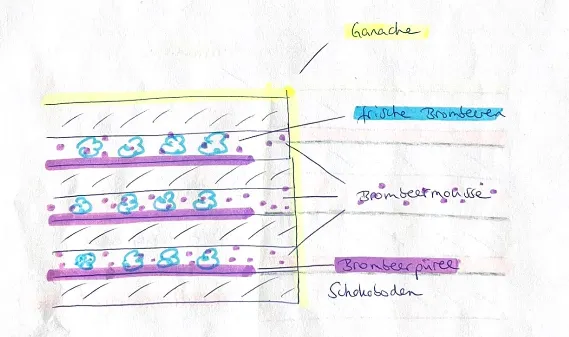 Ganache
frische Brombeeren
Brombeermousse
Brombeerpüree
Schokoboden